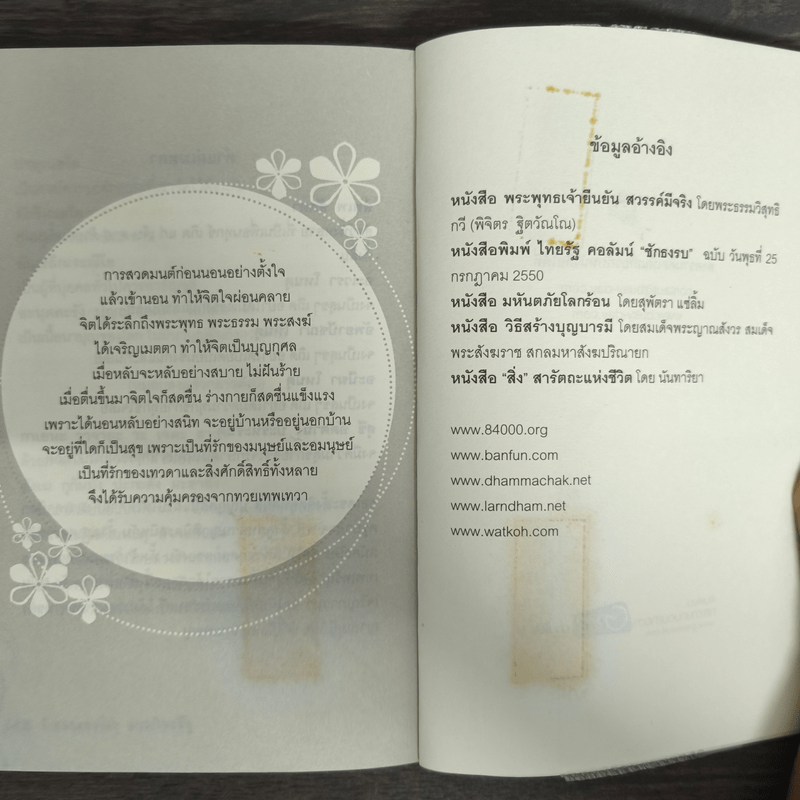 การสวดมนต์ก่อนนอนอย่างตั้งใจ
แล้วเข้านอน ทำให้จิตใจผ่อนคลาย
จิตได้ระลึกถึงพระพุทธ พระธรรม พระสงฆ์
ได้เจริญเมตตา ทำให้จิตเป็นบุญกุศล
เมื่อหลับจะหลับอย่างสบาย ไม่ฝันร้าย
เมื่อตื่นขึ้นมาจิตใจก็สดชื่น ร่างกายก็สดชื่นแข็งแรง
เพราะได้นอนหลับอย่างสนิท จะอยู่บ้านหรืออยู่นอกบ้าน
จะอยู่ที่ใดก็เป็นสุข เพราะเป็นที่รักของมนุษย์และอมนุษย์
เป็นที่รักของเทวดาและสิ่งศักดิ์สิทธิ์ทั้งหลาย
จึงได้รับความคุ้มครองจากทวยเทพเทวา
ข้อมูลอ้างอิง
หนังสือ พระพุทธเจ้ายืนยัน สวรรค์มีจริง โดยพระธรรมวิสุทธิ
กวี (พิจิตร ฐิตวัณโณ)
หนังสือพิมพ์ ไทยรัฐ คอลัมน์ "ชักธงรบ" ฉบับ วันพุธที่ 25
กรกฎาคม 2550
หนังสือ มหันตภัยโลกร้อน โดยสุพัตรา แซ่ลิ้ม
หนังสือ วิธีสร้างบุญบารมี โดยสมเด็จพระญาณสังวร สมเด็จ
พระสังฆราช สกลมหาสังฆปริณายก
หนังสือ "สิ่ง" สารัตถะแห่งชีวิต โดย นันทาริยา
www.84000.org
www.banfun.com
www.dhammachak.net
www.larndham.net
www.watkoh.com